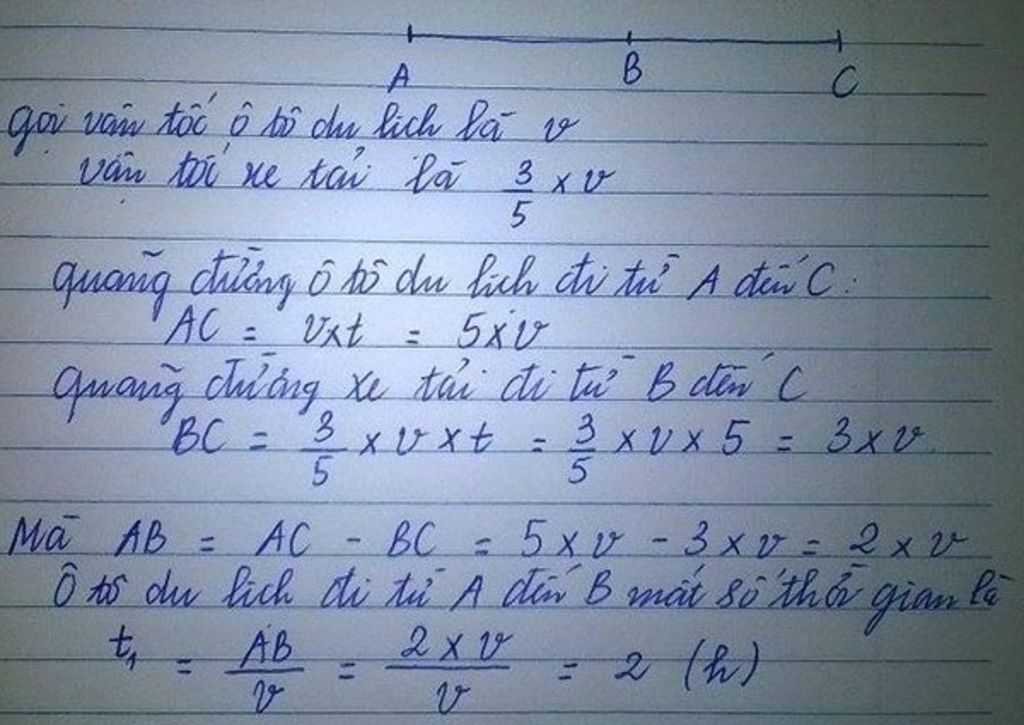 A B C
Gọi vận tốc ô tô du lịch là v
vận tốc xe tải là 3/5 x v
quãng đường ô tô du lịch đi từ A đến C:
AC = v x t = 5 x v
Quãng đường xe tải đi từ B đến C
BC = 3/5 x v x t = 3/5 x v x 5 = 3 x v
Mà AB = AC - BC = 5 x v - 3 x v = 2 x v
Ô tô du lịch đi từ A đến B mất số thời gian là
t₁ = AB/v = 2 x v/v = 2 (h)